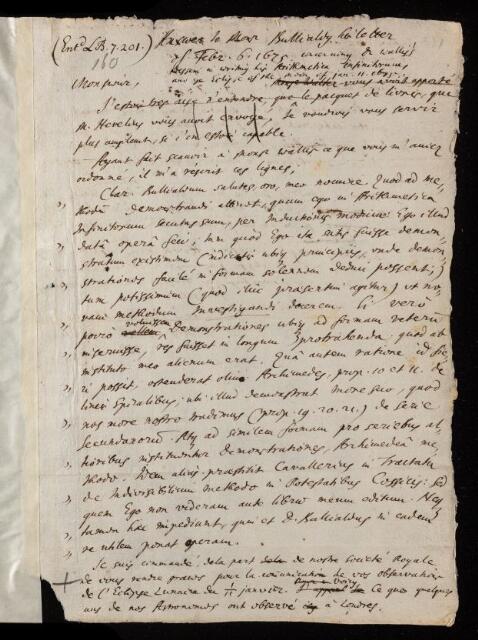 (Ent. LB. 7. 201.) Answer to Monsr Bullialdus his letter
160
of Febr. 6. 1675. concerning Dr wallis's
Arithmetica Infinitorum,
and ye Eclipse of the moon of Jan. 11. 1675.
Monsieur,
J'estois tres aise d'entendre, que le pacquet de livres, que
M. Hevelius vous avoit envoyé, Je voudrois vous servir
plus amplement, si j'en estois capable.
Ayant fait scavoir à Monsr Wallis ce que vous m'aviez
ordonné, il m'a rescrit ces lignes;
Clar. Bullialdum salutes, oro, meo nomine. Quod ad me,
thodum demonstrandi attinet, quam ego in Arithmetica
Infinitorum secutus sum, per Inductionem; Ego illud
datâ operâ feci; tum quod Ego ita satis fuisse demon,
stratum existimem (indicatis ubiq principiis, unde demon,
strationes facilè in formam solennem redigi possent;)
tum potissimum (quod illic praesertim agitur) ut no,
vam methodum Investigandi docerem. Si verò
porro voluissem Demonstrationes ubiq ad formam veterum
instituisse, res fuisset in longum protrahenda, quod ab
instituto meo alienum erat. Quâ autem ratione id fie,
ri possit, ostenderat olim Archimedes, prop. 10 et 11. de
lineis Spiralibus; ubi illud demonstrat more suo, quod
nos more nostro tradimus (prop. 19. 20. 21.) de serie
Secundanorum. Atq ad similem formam pro seriebus al,
tioribus instituuntur demonstrationes, Archimedeâ me,
thodo. Idem alius praestitit Cavallerius in Tractatu
de Indivisibilium methodo in Potestatibus Cossicis: sed
quem Ego non videram ante librum meum editum. Neq
tamen haec impediunt, quin et D. Bullialdus in eadem
re utilem ponat operam.
Je suis commandé de la part de nostre Societé Royale
de vous rendre graces pour la communication de vos observations
de l'Eclipse Lunaire du 1/11 janvier. Voicy Ce que quelques
uns de nos Astronomes ont observé à Londres.